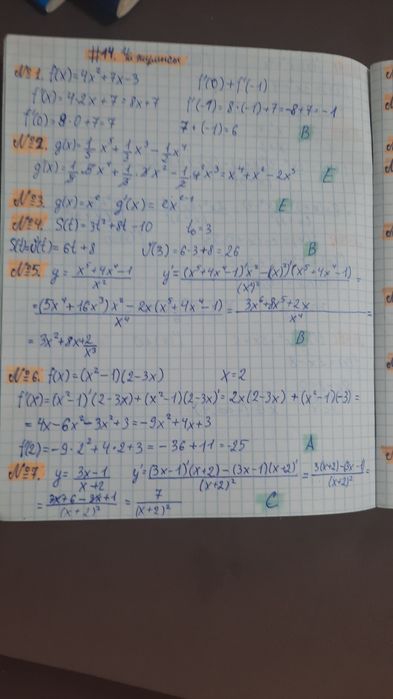 #14.
№1. f(x)=4x²+7x-3 f'(0)+f'(-1)
f'(x)=4·2x+7=8x+7 f'(-1)=8·(-1)+7=-8+7=-1
f'(0)=8·0+7=7 7+(-1)=6 B
№2. g(x)=1/5 x⁵+1/3 x³-1/2 x⁴
g(x)=1/5·5x⁴+1/3·3x²-1/2·4x³=x⁴+x²-2x³ E
№3. g(x)=xᵉ g'(x)=exᵉ⁻¹ E
№4. S(t)=3t²+8t-10 t₀=3
S(t)=v(t)=6t+8 v(3)=6·3+8=26 B
№5. y=(x⁵+4x⁴-1)/x² y'=((x⁵+4x⁴-1)'x²-(x²)'(x⁵+4x⁴-1))/(x²)²=
=((5x⁴+16x³)x²-2x(x⁵+4x⁴-1))/x⁴=(3x⁶+8x⁵+2x)/x⁴=
=3x²+8x+2/x³ B
№6. f(x)=(x²-1)(2-3x) x=2
f'(x)=(x²-1)'(2-3x)+(x²-1)(2-3x)'=2x(2-3x)+(x²-1)(-3)=
=4x-6x²-3x²+3=-9x²+4x+3
f(2)=-9·2²+4·2+3=-36+11=-25 A
№7. y=(3x-1)/(x+2) y'=((3x-1)'(x+2)-(3x-1)(x+2)')/(x+2)²=(3(x+2)-(3x-1))/(x+2)²=
=(3x+6-3x+1)/(x+2)²=7/(x+2)² C